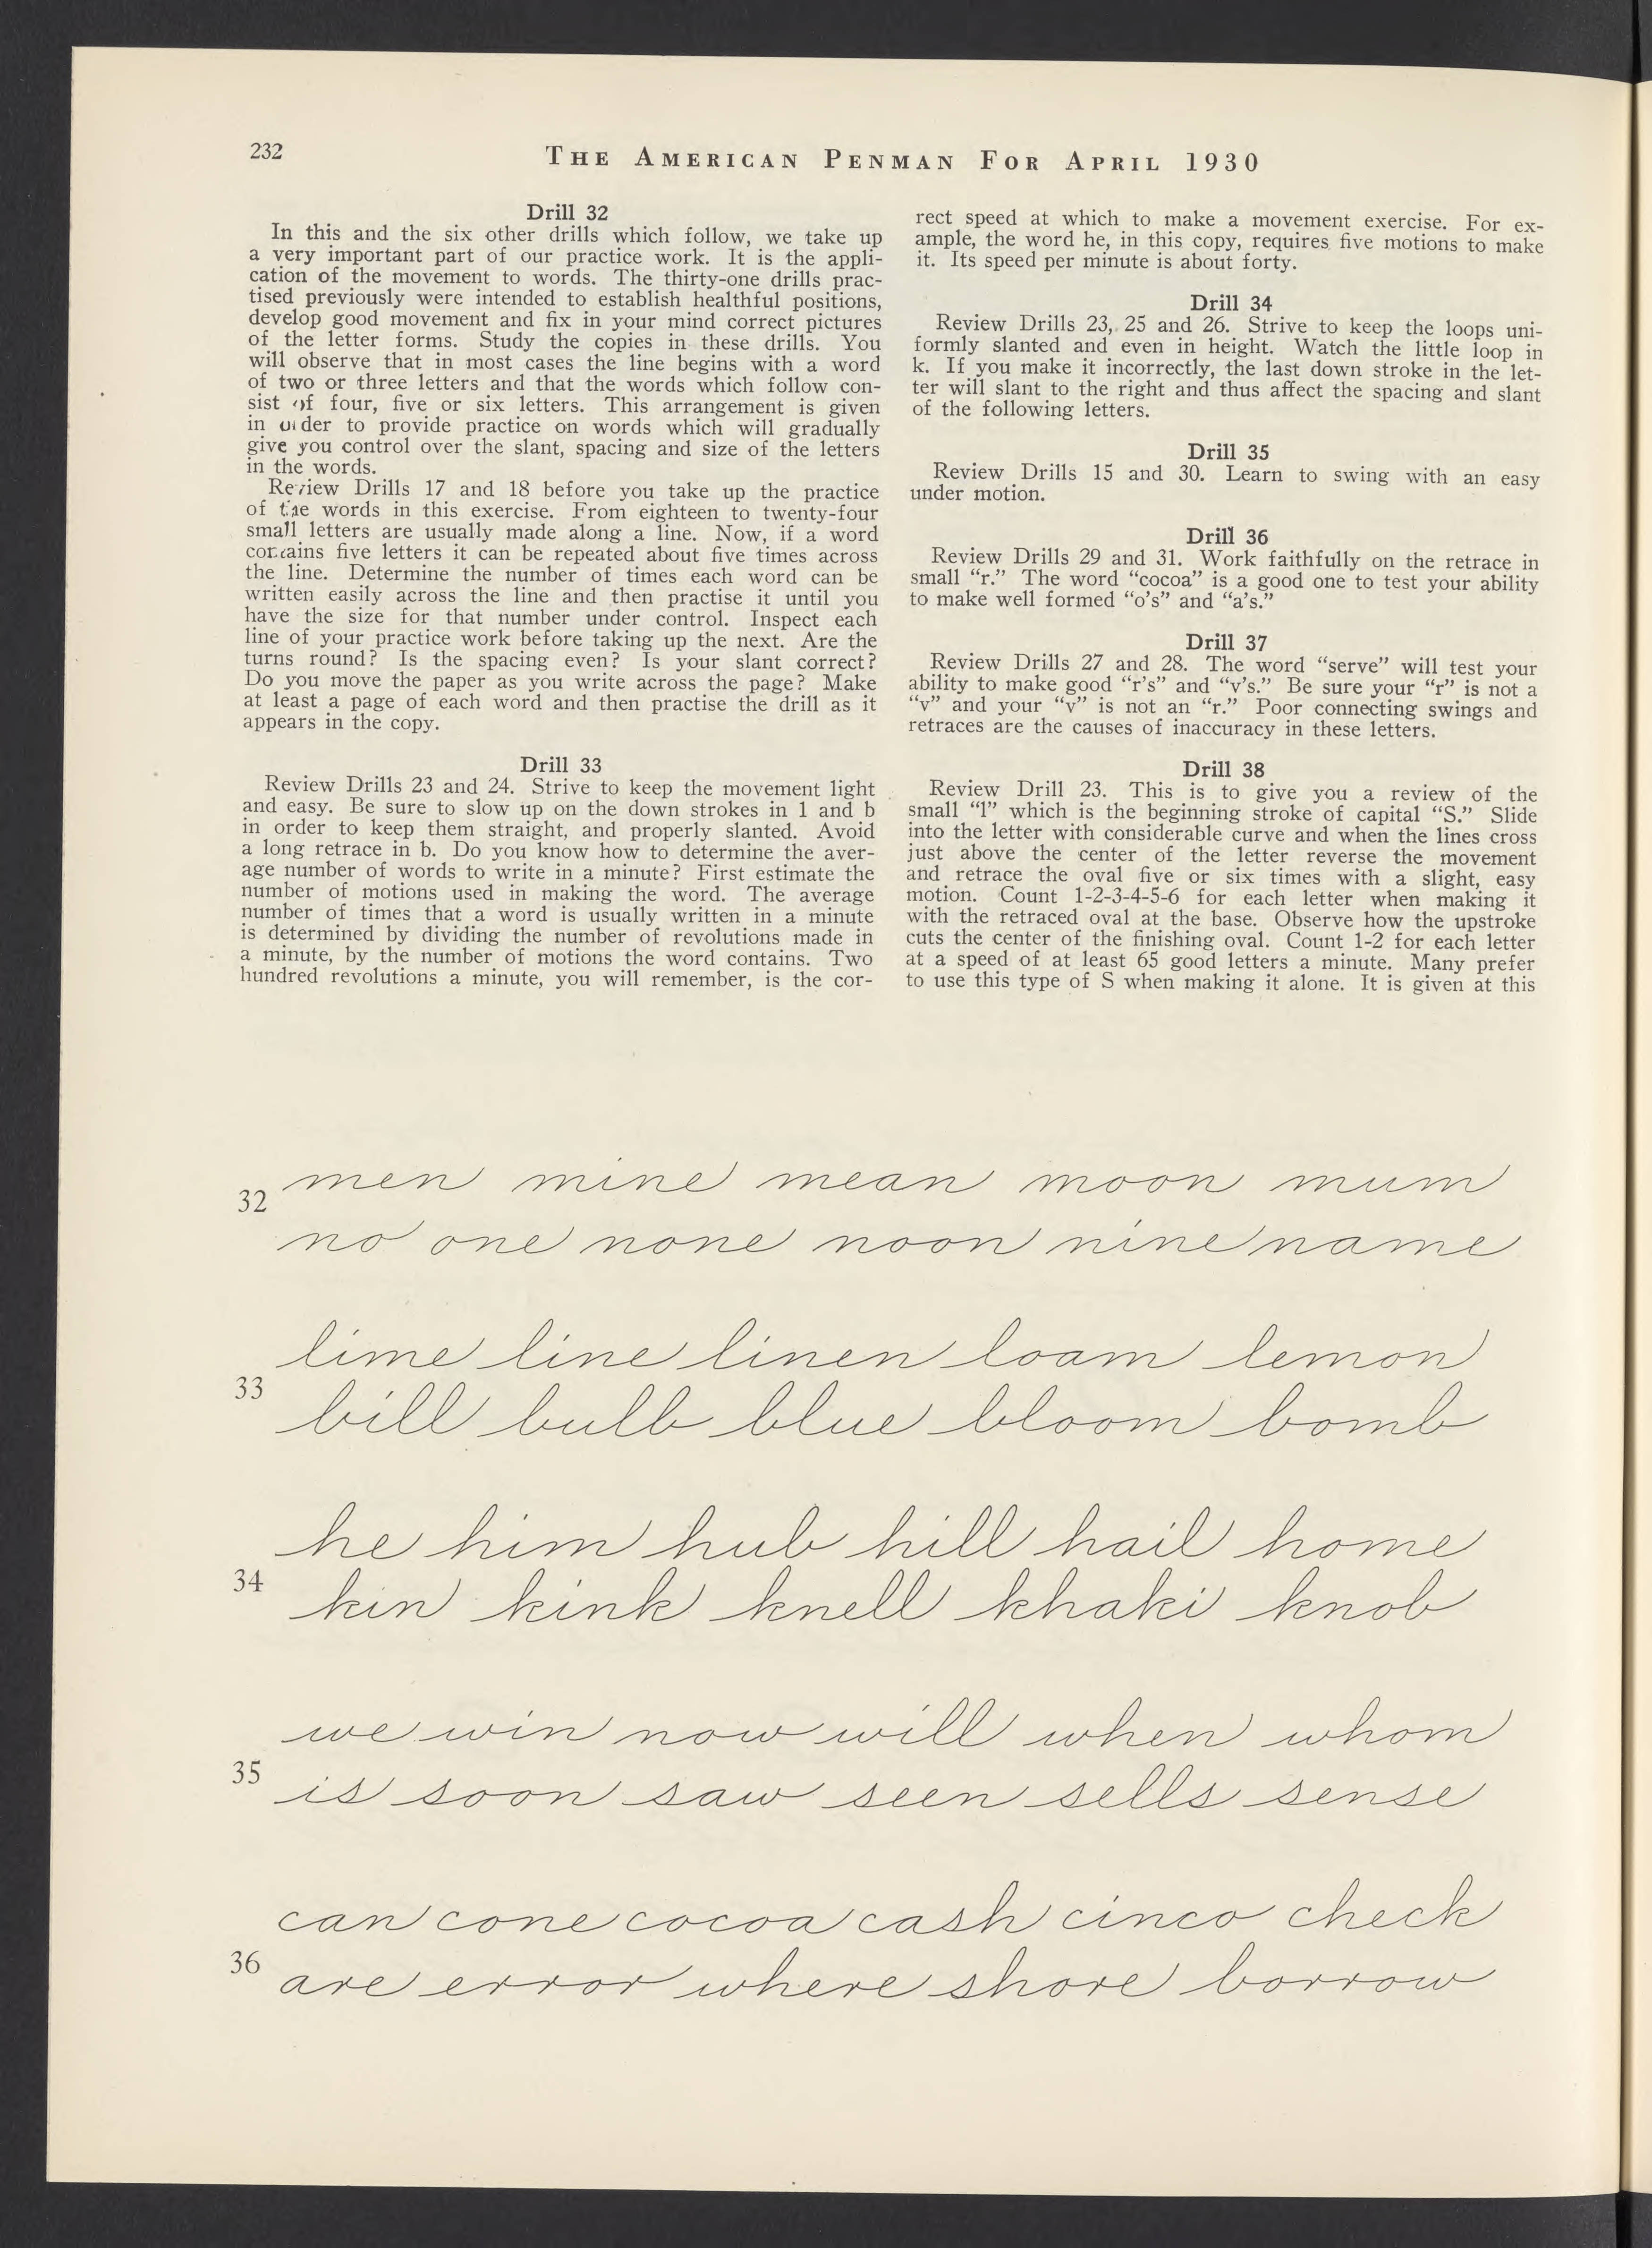 232
THE AMERICAN PENMAN FOR APRIL 1930
Drill 32
In this and the six other drills which follow, we take up
a very important part of our practice work. It is the appli-
cation of the movement to words. The thirty-one drills prac-
tised previously were intended to establish healthful positions,
develop good movement and fix in your mind correct pictures
of the letter forms. Study the copies in these drills. You
will observe that in most cases the line begins with a word
of two or three letters and that the words which follow con-
sist of four, five or six letters. This arrangement is given
in order to provide practice on words which will gradually
give you control over the slant, spacing and size of the letters
in the words.
Review Drills 17 and 18 before you take up the practice
of the words in this exercise. From eighteen to twenty-four
small letters are usually made along a line. Now, if a word
contains five letters it can be repeated about five times across
the line. Determine the number of times each word can be
written easily across the line and then practise it until you
have the size for that number under control. Inspect each
line of your practice work before taking up the next. Are the
turns round? Is the spacing even? Is your slant correct?
Do you move the paper as you write across the page? Make
at least a page of each word and then practise the drill as it
appears in the copy.
Drill 33
Review Drills 23 and 24. Strive to keep the movement light
and easy. Be sure to slow up on the down strokes in l and b
in order to keep them straight, and properly slanted. Avoid
a long retrace in b. Do you know how to determine the aver-
age number of words to write in a minute? First estimate the
number of motions used in making the word. The average
number of times that a word is usually written in a minute
is determined by dividing the number of revolutions made in
a minute, by the number of motions the word contains. Two
hundred revolutions a minute, you will remember, is the cor-
rect speed at which to make a movement exercise. For ex-
ample, the word he, in this copy, requires five motions to make
it. Its speed per minute is about forty.
Drill 34
Review Drills 23, 25 and 26. Strive to keep the loops uni-
formly slanted and even in height. Watch the little loop in
k. If you make it incorrectly, the last down stroke in the let-
ter will slant to the right and thus affect the spacing and slant
of the following letters.
Drill 35
Review Drills 15 and 30. Learn to swing with an easy
under motion.
Drill 36
Review Drills 29 and 31. Work faithfully on the retrace in
small “r.” The word “cocoa” is a good one to test your ability
to make well formed “o's” and “a's.”
Drill 37
Review Drills 27 and 28. The word “serve” will test your
ability to make good “r's” and “v's.” Be sure your “r” is not a
“v” and your “v” is not an “r.” Poor connecting swings and
retraces are the causes of inaccuracy in these letters.
Drill 38
Review Drill 23. This is to give you a review of the
small “l” which is the beginning stroke of capital “S.” Slide
into the letter with considerable curve and when the lines cross
just above the center of the letter reverse the movement
and retrace the oval five or six times with a slight, easy
motion. Count 1-2-3-4-5-6 for each letter when making it
with the retraced oval at the base. Observe how the upstroke
cuts the center of the finishing oval. Count 1-2 for each letter
at a speed of at least 65 good letters a minute. Many prefer
to use this type of S when making it alone. It is given at this
32
men mine mean moon mum
no one none noon nine name
33
lime line linen loam lemon
bill bulb blue bloom bomb
34
he him hub hill hail home
kin kink knell khaki knob
35
we win now will when whom
is soon saw seen sells sense
36
can cone cocoa cash cinco check
are error where shore borrow